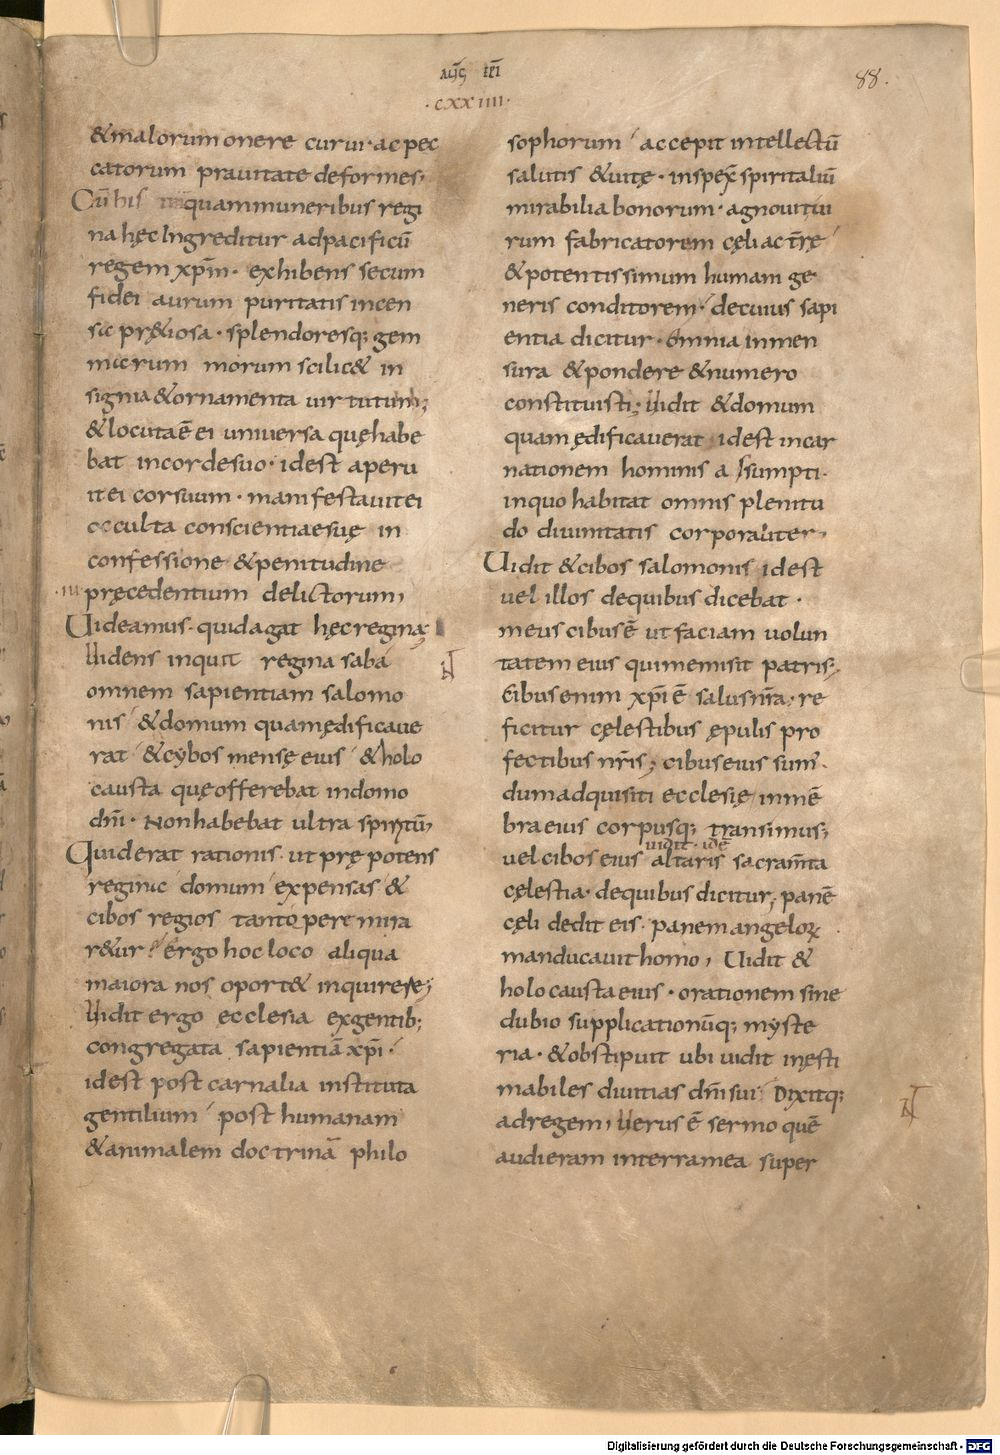 aug̅ epi̅
·cxxiiii·
88.
&malorum onere curui· ac pec
catorum prauitate deformes,
Cu̅ his quam muneribus regi
na hęc Ingreditur ad pacificu̅
regem xp̅m· exhibens secum
fidei aurum puritatis incen
sa prętiosa· splendoresq; gem
marum morum scilic& in
signia &ornamenta uirtutum;
&locuta e̅ ei uniuersa quę habe
bat incordesuo· idest aperu
it ei cor suum· manifestauit ei
occulta conscientiae suę in
confessione &penitudine
·iii· pręcedentium delictorum,
Uideamus· quid agat hęc regina;
Uidens inquit regina saba
omnem sapientiam salomo
nis &domum quam ędificaue
rat &cybos mensę eius &holo
causta quę offerebat indomo
dn̅i· Non habebat ultra spiritu̅,
Quid erat rationis· ut prępotens
regina domum expensas &
cibos regios tantopere mira
r&ur? ergo hoc loco aliqua
maiora nos oport& inquirere;
Uidit ergo ecclesia exgentib;
congregata sapientia̅ xp̅i·
idest post carnalia instituta
gentilium post humanam
&animalem doctrina̅ philo
sophorum accepit intellectu̅
salutis &uitę· inspex& spiritaliu̅
mirabilia bonorum· agnouit uir
rum fabricatorem cęli ac tr̅ę
&potentissimum humani ge
neris conditorem· decuius sapi
entia dicitur· omnia inmen
sura &pondere &numero
constituisti; Uidit &domum
quam ędificauerat idest incar
nationem hominis a sumpti·
inquo habitat omnis plenitu
do diuinitatis corporaliter,
Uidit &cibos salomonis idest
uel illos dequibus dicebat·
meus cibus e̅ ut faciam uolun
tatem eius qui me misit patris;
Cibus enim xp̅i e̅ salus nr̅a· re
ficitur cęlestibus ępulis pro
fectibus nr̅is; cibus eius sum·
dum adquisiti ecclesię in me̅
bra eius corpusq; transimus;
uidit· ide̅
uel cibos eius altaris sacram̅ta
cęlestia· dequibus dicitur; pane̅
cęli dedit eis· panem angelorum
manducauit homo, Uidit &
holocausta eius· orationem sine
dubio supplicationu̅q; myste
ria· &obstipuit ubi uidit inęsti
mabiles diuitias dn̅i sui Dixitq;
adregem, Uerus e̅ sermo que̅
audieram interra mea super
Digitalisierung gefördert durch die Deutsche Forschungsgemeinschaft - DFG